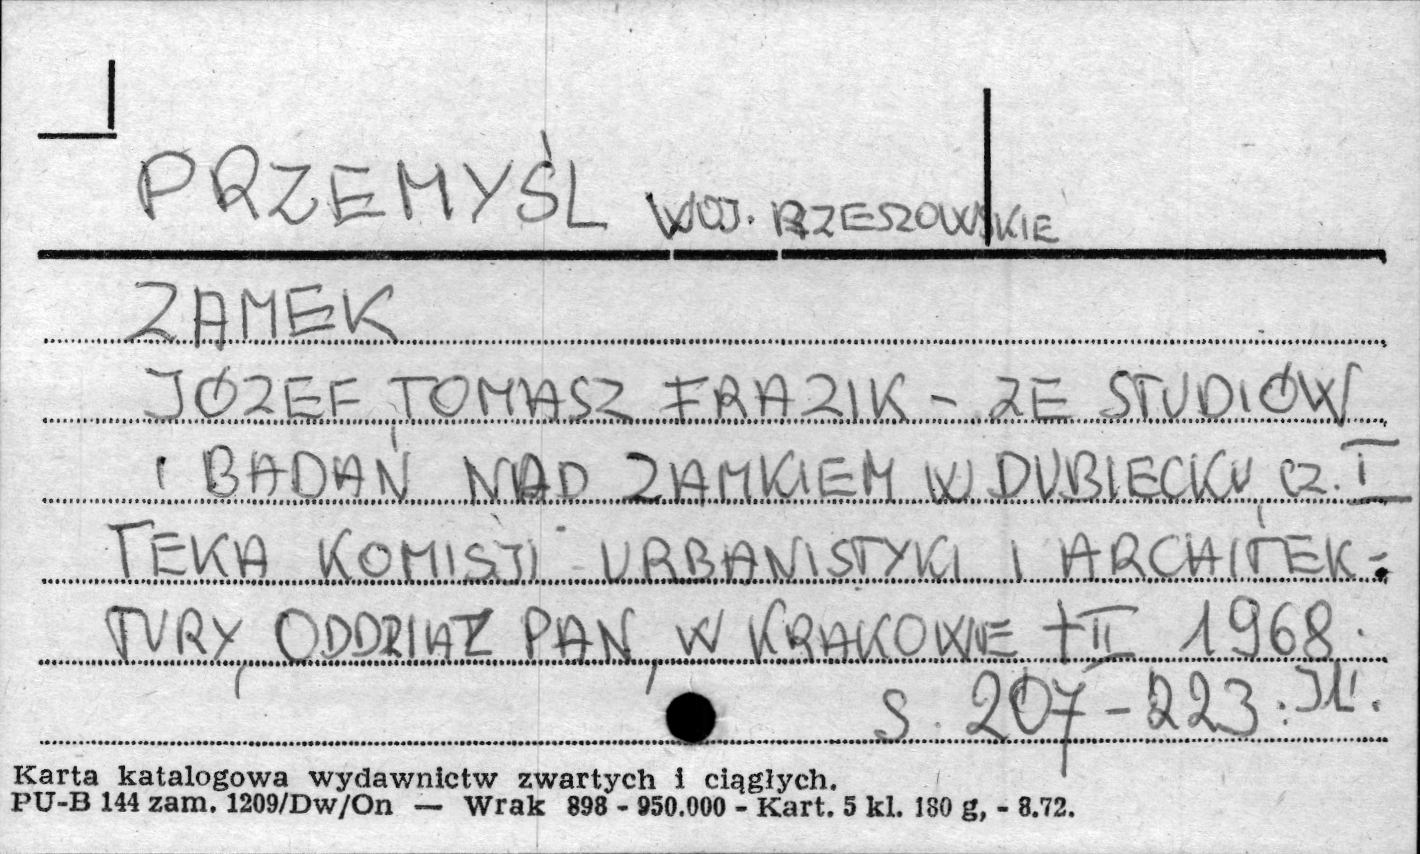 PRZEMYŚL WOJ. RZESZOWSKIE
ZAMEK
JÓZEF TOMASZ FRAZIK - ZE STUDIÓW
I BADAŃ NAD ZAMKIEM W DUBIECKU CZ. I
TEKA KOMISJI URBANISTYKI I ARCHITEK=
TURY, ODDZIAŁ PAN, W KRAKOWIE t II 1968.
S. 207-223. Il.
Karta katalogowa wydawnictw zwartych i ciągłych.
PU-B 144 zam. 1209/Dw/On — Wrak 898 - 950.000 - Kart. 5 kl. 180 g, - 8.72.